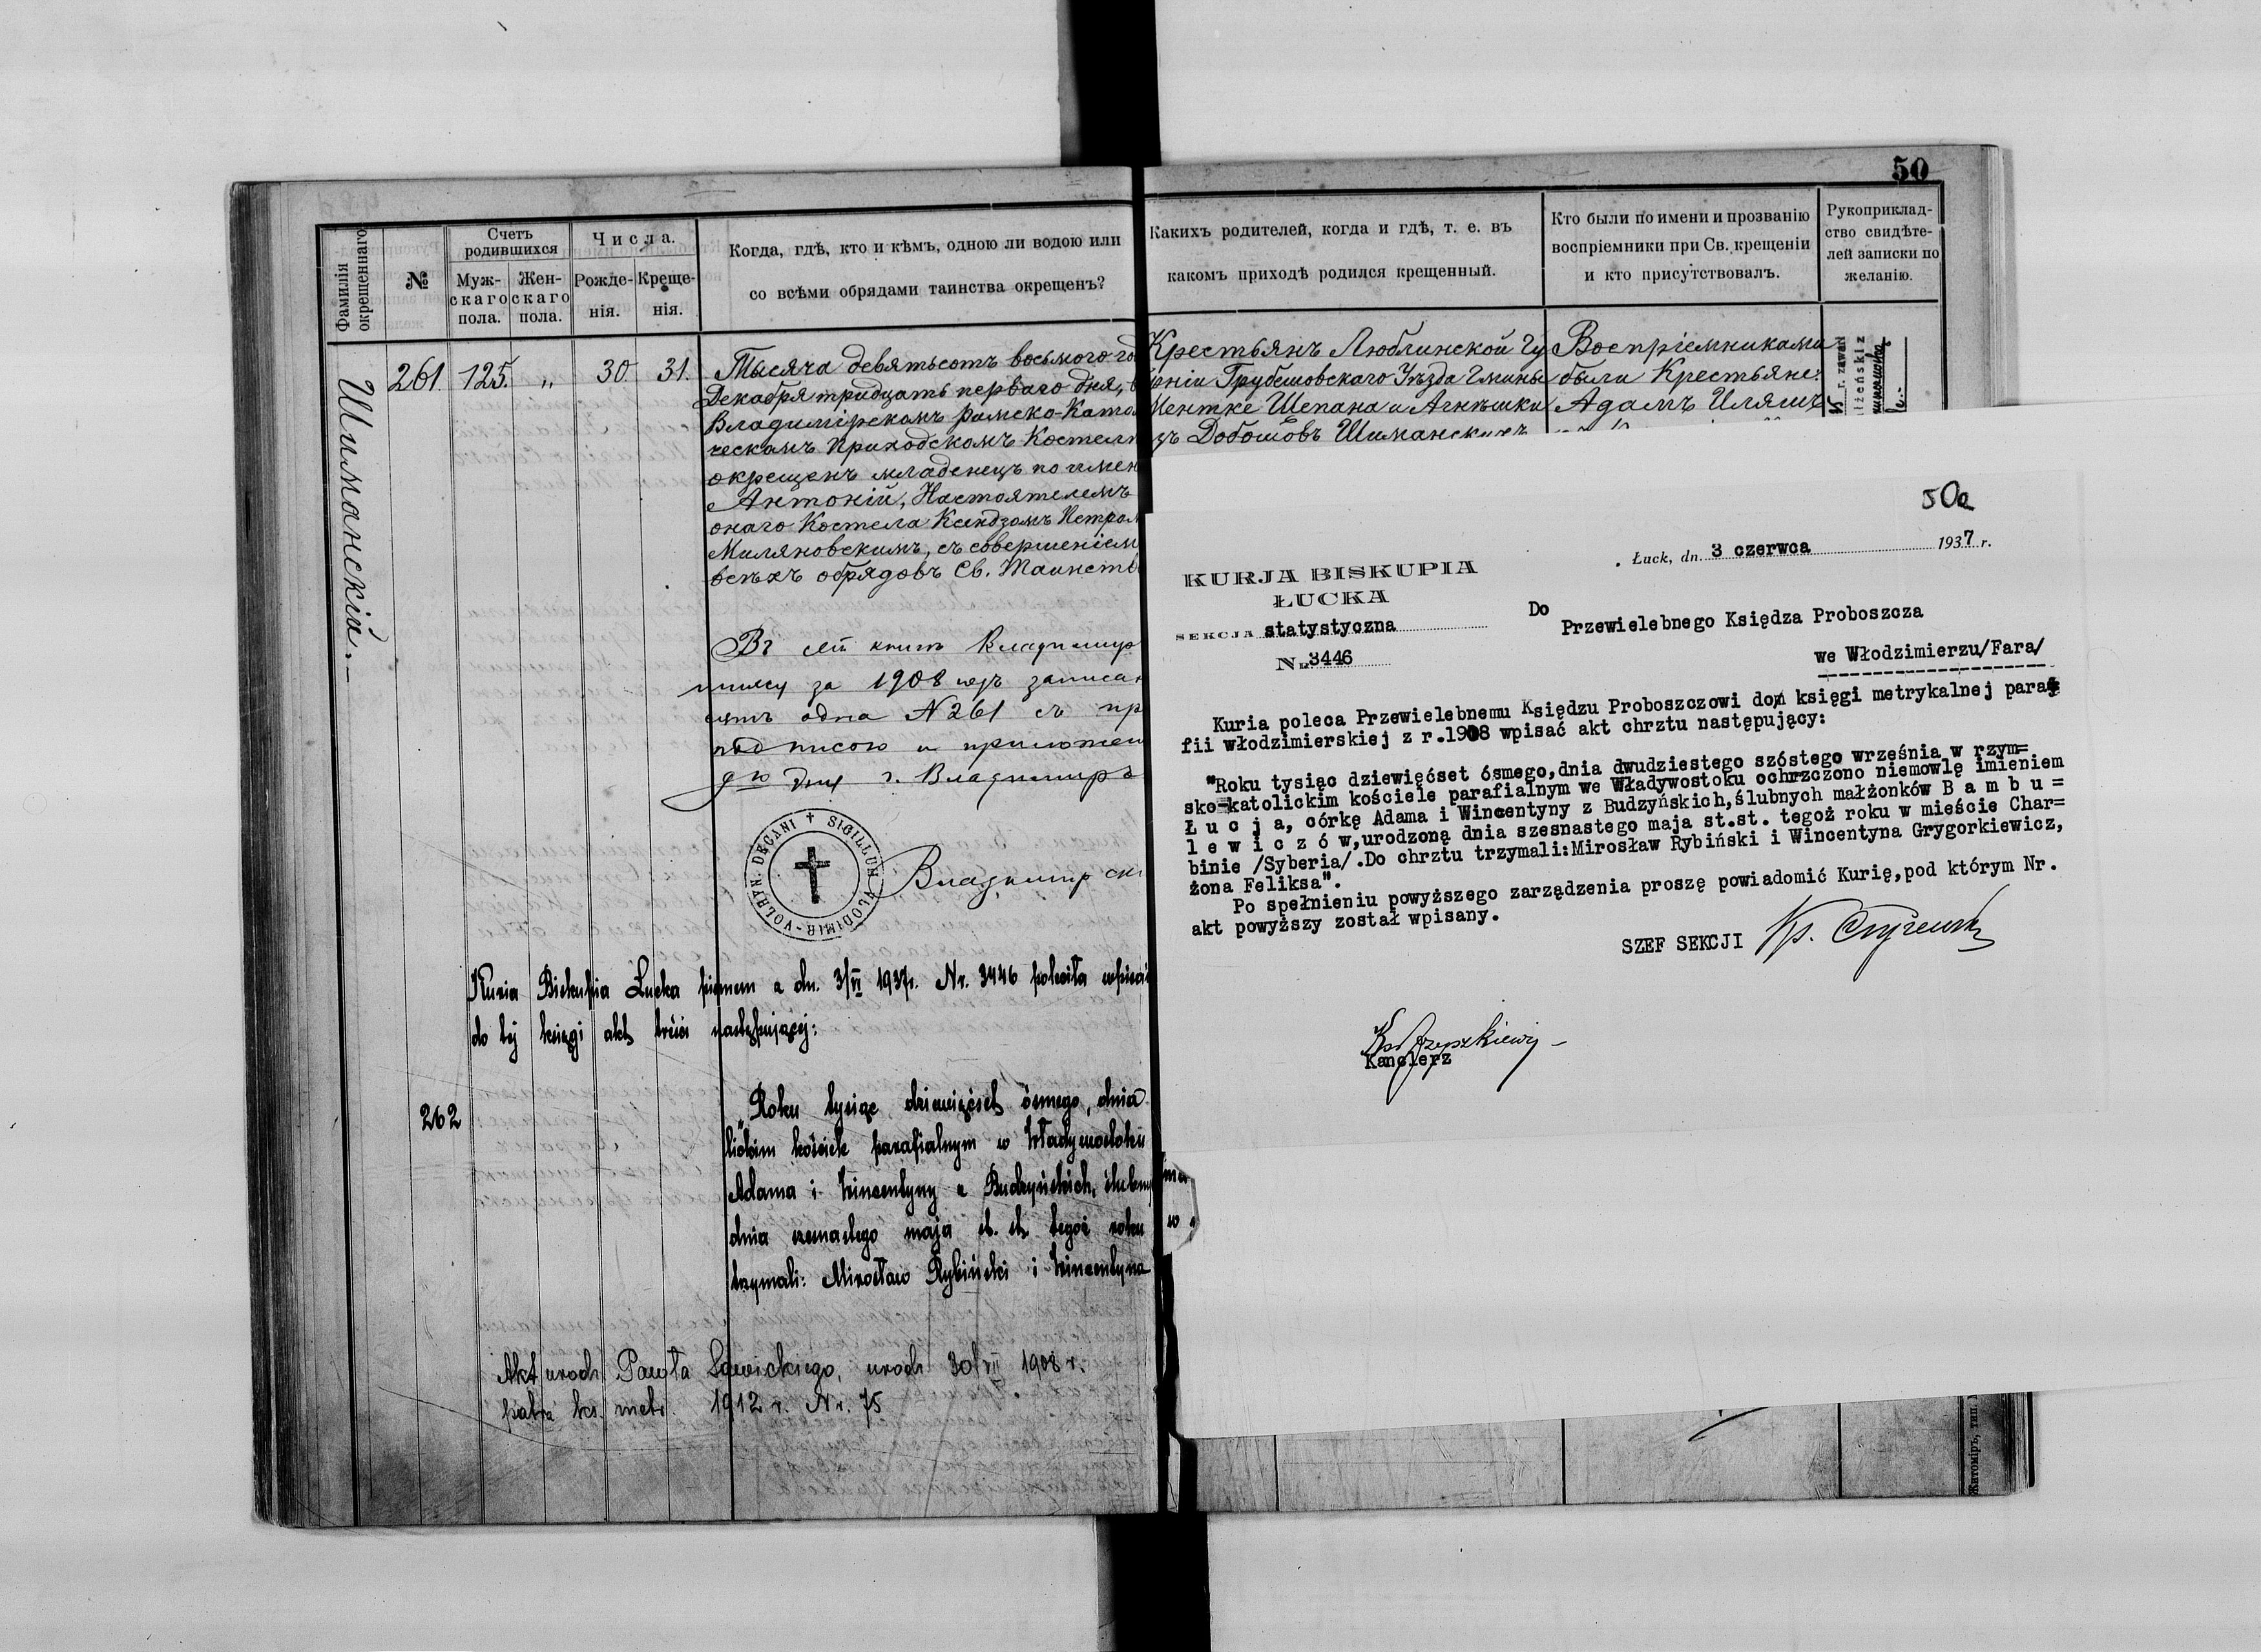 50
Фамилія окрещеннаго
№
Счетъ родившихся
Муж-скаго пола.
Жен-скаго пола.
Числа.
Рожде-нія.
Креще-нія.
Когда, гдѣ, кто и кѣмъ, одною ли водою или
со всѣми обрядами таинства окрещенъ?
Какихъ родителей, когда и гдѣ, т. е. въ
какомъ приходѣ родился крещенный.
Кто были по имени и прозванію
воспріемники при Св. крещеніи
и кто присутствовалъ.
Рукоприклад-
ство свидѣте-
лей записки по
желанію.
Шиманскій.
261 125. „ 30 31.
Тысяча девятьсотъ восьмого го
Декабря тридцать перваго дня, в
Владимірскомъ Римско-Като
ческомъ Приходскомъ Костелѣ
окрещенъ младенецъ по имен
Антоній, Настоятелемъ
онаго Костела Ксендзомъ Петром
Миляновскимъ, съ совершеніем
всѣхъ обрядовъ Св. Таинств
Крестьянъ Люблинской Гу
берніи Грубешовскаго Уѣзда Гмины
Ментке Щепана и Агнѣшки
зъ Добошовъ Шиманскихъ
Воспріемниками
были Крестьяне:
Адамъ Иляшъ
r. zawarł
Въ сей книгѣ Владимир
за 1908 годъ записан
одна N261 съ пр
подписью и приложен
дня г. Владимиръ
SIGILLUM VLODIMIR-VOLHYN. DECANI
Владимирск
Kuria Biskupia Łucka pismem z dn. 3/VI 1937r. Nr. 3446 poleciła wpisać
do tej księgi akt treści następującej:
262
"Roku tysiąc dziewięćset ósmego, dnia
lickim kościele parafialnym w Władywostoku
Adama i Wincentyny z Budzyńskich, ślubny
dnia szesnastego maja st. st. tegoż roku w
trzymali: Mirosław Rybiński i Wincentyna
Akt urodz. Pawła Sawickiego, urodz. 30/VII 1908 r.
patrz ks. metr. 1912 r. Nr. 75
50a
Łuck, dn. 3 czerwca 1937 r.
KURJA BISKUPIA
ŁUCKA
SEKCJA statystyczna
Nr. 3446
Do
Przewielebnego Księdza Proboszcza
we Włodzimierzu/Fara/
Kuria poleca Przewielebnemu Księdzu Proboszczowi do księgi metrykalnej para=
fii włodzimierskiej z r.1908 wpisać akt chrztu następujący:
"Roku tysiąc dziewięćset ósmego,dnia dwudziestego szóstego września w rzym=
sko-katolickim kościele parafialnym we Władywostoku ochrzczono niemowlę imieniem
Ł u c j a, córkę Adama i Wincentyny z Budzyńskich,ślubnych małżonków B a m b u =
l e w i c z ó w,urodzoną dnia szesnastego maja st.st. tegoż roku w mieście Char=
binie /Syberia/.Do chrztu trzymali:Mirosław Rybiński i Wincentyna Grygorkiewicz,
żona Feliksa".
Po spełnieniu powyższego zarządzenia proszę powiadomić Kurię,pod którym Nr.
akt powyższy został wpisany.
SZEF SEKCJI
Kanclerz